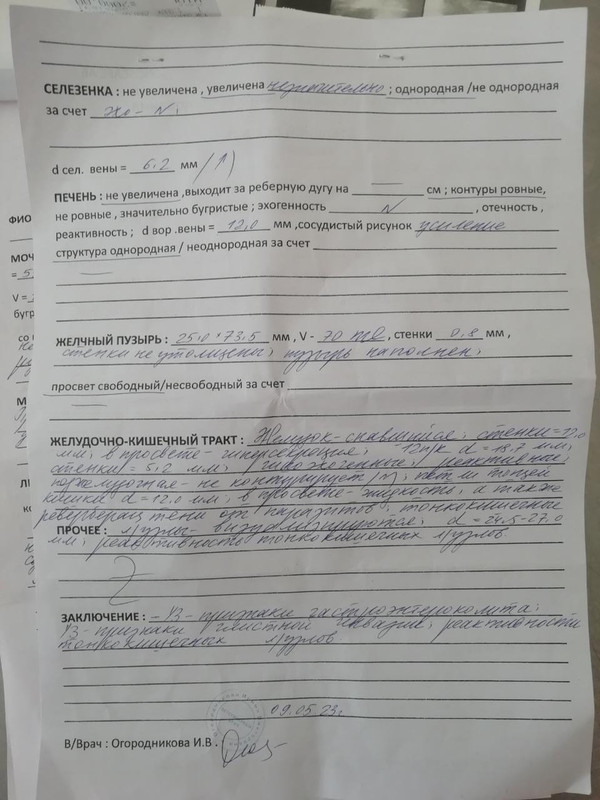 СЕЛЕЗЕНКА : не увеличена , увеличена незначительно ; однородная /не однородная
за счет эхо - N.
d сел. вены = 6.2 мм /↑)
ПЕЧЕНЬ : не увеличена ,выходит за реберную дугу на — см ; контуры ровные,
не ровные , значительно бугристые ; эхогенность N , отечность ,
реактивность ; d вор .вены = 12,0 мм ,сосудистый рисунок усиление
структура однородная / неоднородная за счет
ЖЕЛЧНЫЙ ПУЗЫРЬ : 25.0 * 73.5 мм , V - 20 ml , стенки 0,8 мм ,
стенки не утолщены, пузырь наполнен.
просвет свободный/несвободный за счет
ЖЕЛУДОЧНО-КИШЕЧНЫЙ ТРАКТ : Желудок - спавшийся, стенки =
мм, в просвете - гиперсекреция, 12п/к d = 18.7 мм,
стенки = 5.2 мм, реактивные,
поджелудочная - не контурирует тощей
кишки d = 12.0 мм, в просвете - жидкость, а также
реверберац тени от паразитов, тонкокишечные
ПРОЧЕЕ : л/узлы - визуализируются, d = 24.5 - 27.0
мм, реактивность тонкокишечных л/узлов
ЗАКЛЮЧЕНИЕ : - УЗ - признаки гастроэнтероколита,
УЗ - признаки глистной инвазии, реактивности
тонкокишечных л/узлов.
09.05.23г
В/Врач : Огородникова И.В .
ФИО
МОЧ
V =
бугр
со